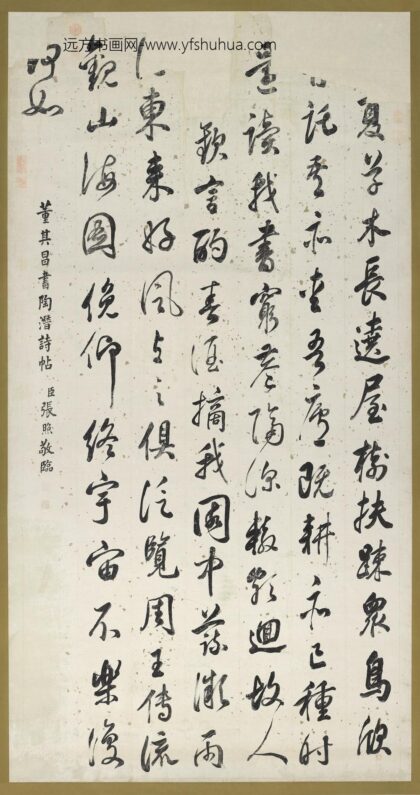 远方书画网:www.yfshuhua.com
夏草木長遶屋樹扶踈衆鳥欣
託吾亦愛吾廬既耕亦已種時
還讀我書窮巷隔深轍頗迴故人
歡言酌春酒摘我園中蔬微雨
東來好風與之俱泛覽周王傳流
觀山海圖俛仰終宇宙不樂復
何如
董其昌書陶潛詩帖 臣張照敬臨